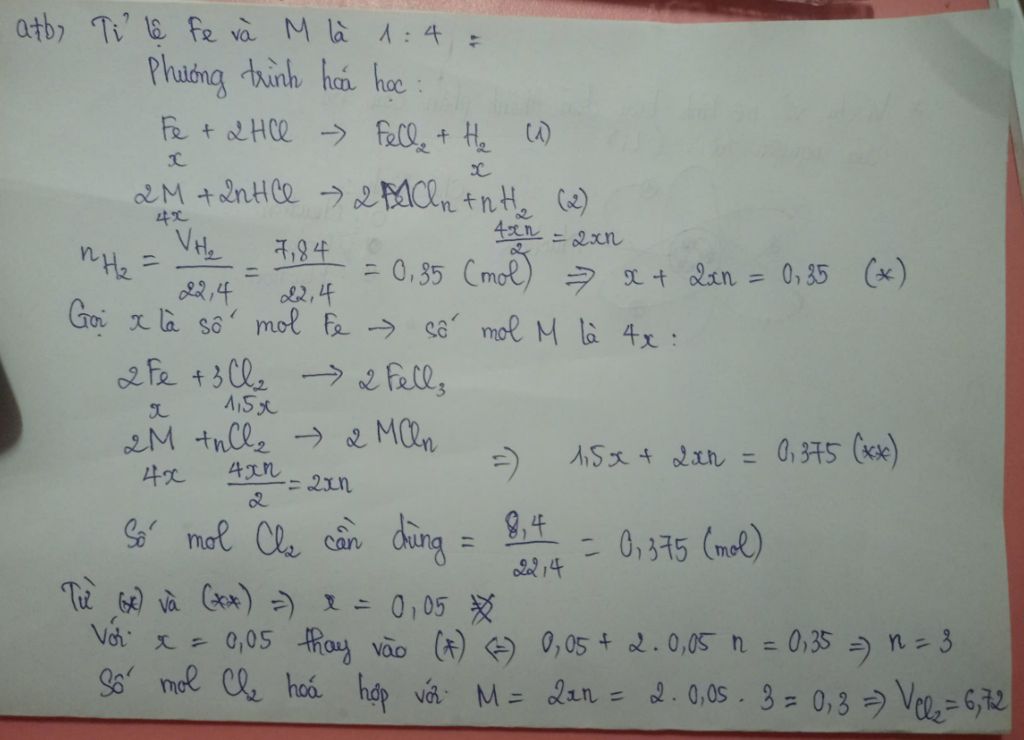 a+b, Tỉ lệ Fe và M là 1 : 4 =
Phương trình hoá học :
Fe + 2HCl → FeCl₂ + H₂ (1)
x x
2M + 2nHCl → 2MCln + nH₂ (2)
4x 4xn/2 = 2xn
nH₂ = VH₂/22,4 = 7,84/22,4 = 0,35 (mol) ⇒ x + 2xn = 0,35 (*)
Gọi x là số mol Fe → số mol M là 4x :
2Fe + 3Cl₂ → 2FeCl₃
x 1,5x
2M + nCl₂ → 2MCln
4x 4xn/2 = 2xn ⇒ 1,5x + 2xn = 0,375 (**)
Số mol Cl₂ cần dùng = 8,4/22,4 = 0,375 (mol)
Từ (*) và (**) ⇒ x = 0,05
Với x = 0,05 thay vào (*) ⇔ 0,05 + 2.0,05 n = 0,35 ⇒ n = 3
Số mol Cl₂ hoá hợp với M = 2xn = 2.0,05.3 = 0,3 ⇒ VCl₂ = 6,72